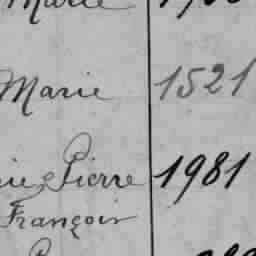 Marie
Marie 1521
Pierre 1981
François